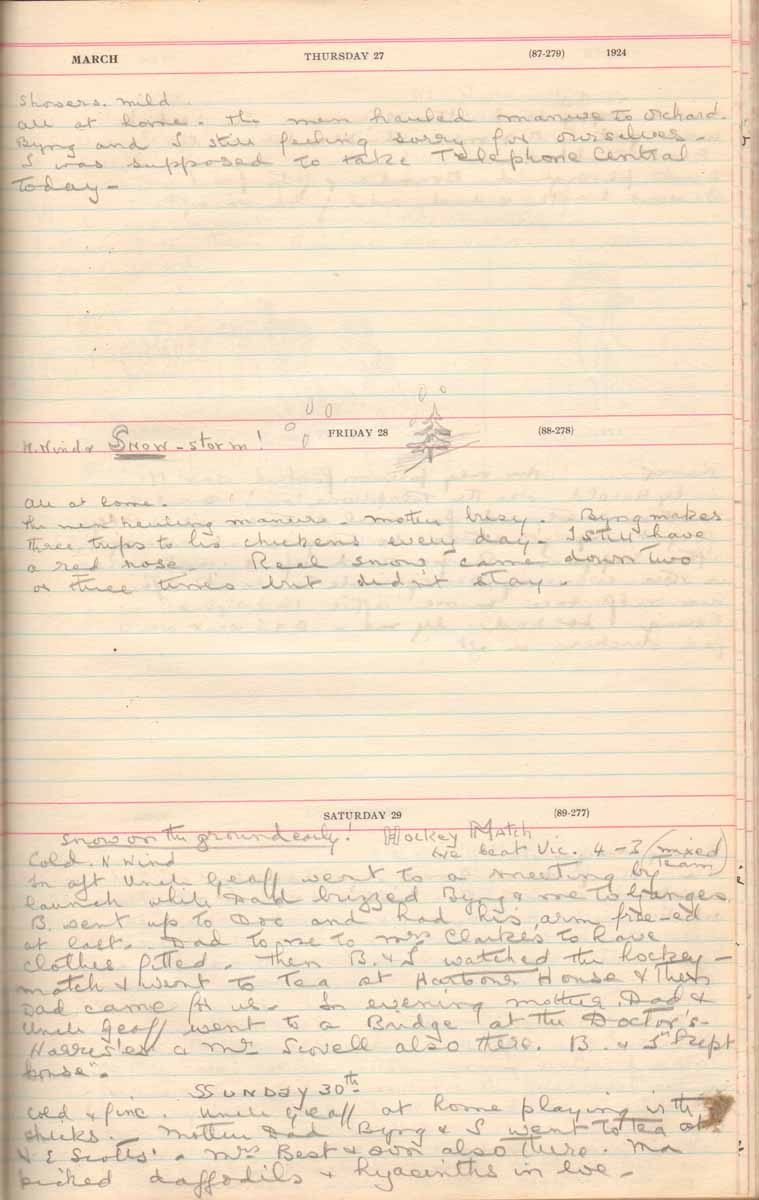 MARCH THURSDAY 27 (87-279) 1924
Showers. mild.
All at home. The men hauled manure to orchard.
Byng and I still feeling sorry for ourselves -
I was supposed to take Telephone Central
Today -
FRIDAY 28 (88-278)
N. Wind & SNOW-storm!
All at home.
The men hauling manure - mother busy. Byng makes
three trips to his chickens every day - I still have
a red nose. Real snow came down two
or three times but didn't stay.
SATURDAY 29 (89-277)
Snow on the ground early! Hockey Match
We beat Vic. 4-3 (mixed Team)
Cold. N Wind
In aft Uncle Geoff went to a meeting by
launch while Dad brizzed Byng & me to Ganges.
B. went up to Doc and had his arm free-ed
at last. Dad to me to Mrs Clarkes to have
clothes fitted. Then B. & I watched the hockey -
match & went to Tea at Harbour House & then
Dad came for us - In evening mother, Dad &
Uncle Geoff went to a Bridge at the Doctor's -
Harris'es & Mrs Scovell also there. B. & I "kept
house".
SUNDAY 30th
Cold & fine. Uncle Geoff at home playing with
chicks. Mother Dad Byng & I went to tea at
Scotts' - Mrs Best & son also there. Ma
picked daffodils & hyacinths in eve -